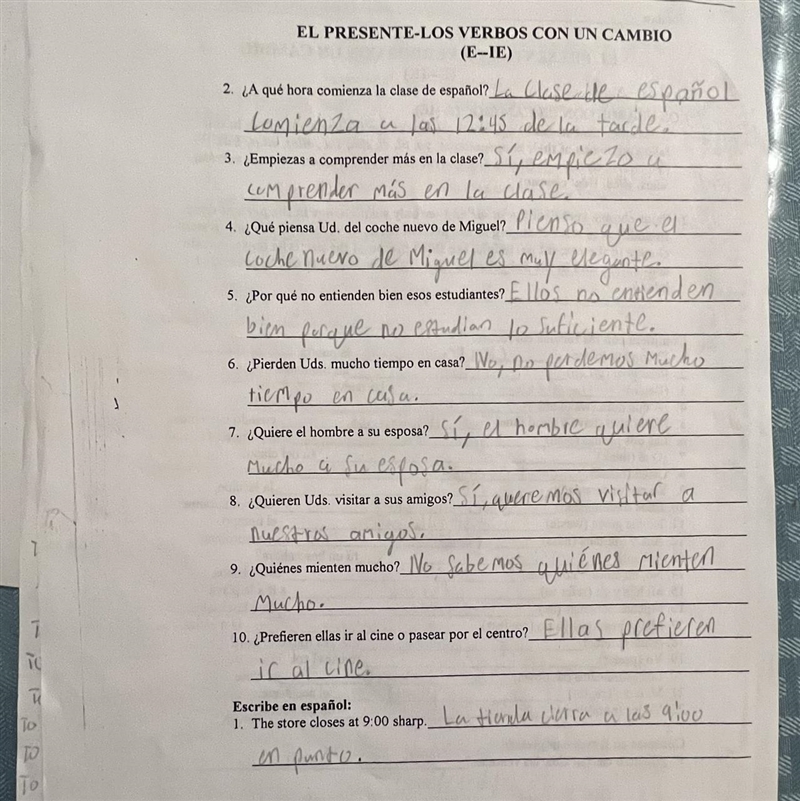 EL PRESENTE-LOS VERBOS CON UN CAMBIO
(E--IE)
2. ¿A qué hora comienza la clase de español? La clase de español
comienza a las 12:45 de la tarde.
3. ¿Empiezas a comprender más en la clase? Sí, empiezo a
comprender más en la clase.
4. ¿Qué piensa Ud. del coche nuevo de Miguel? Pienso que el
coche nuevo de Miguel es muy elegante.
5. ¿Por qué no entienden bien esos estudiantes? Ellos no entienden
bien porque no estudian lo suficiente.
6. ¿Pierden Uds. mucho tiempo en casa? No, no perdemos mucho
tiempo en casa.
7. ¿Quiere el hombre a su esposa? Sí, el hombre quiere
mucho a su esposa.
8. ¿Quieren Uds. visitar a sus amigos? Sí, queremos visitar a
nuestros amigos.
9. ¿Quiénes mienten mucho? No sabemos quiénes mienten
mucho.
10. ¿Prefieren ellas ir al cine o pasear por el centro? Ellas prefieren
ir al cine.
Escribe en español:
1. The store closes at 9:00 sharp. La tienda cierra a las 9:00
en punto.